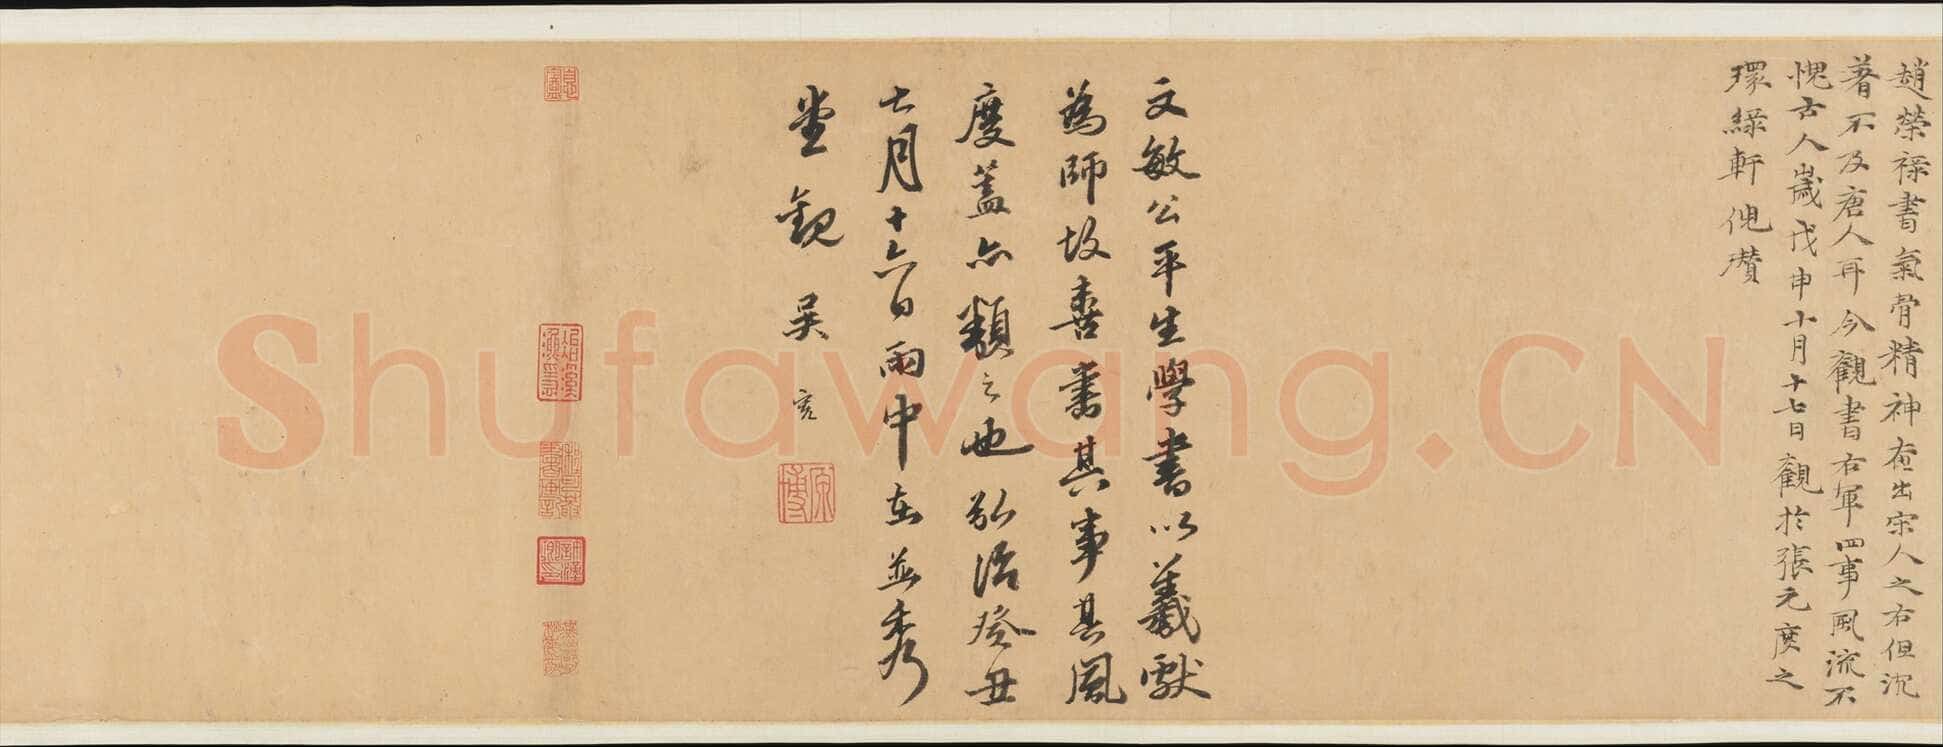 趙榮祿書氣骨精神在出宋人之右但沉
著不及唐人耳今觀書右軍四事風流不
愧古人歲戊申十月十七日觀於張元度之
環綠軒倪瓚
文敏公平生學書以羲獻
為師故喜書其事其風
度蓋亦類之也弘治癸丑
七月十六日雨中在並秀
堂觀 吳寬
原博
Shufawang.CN